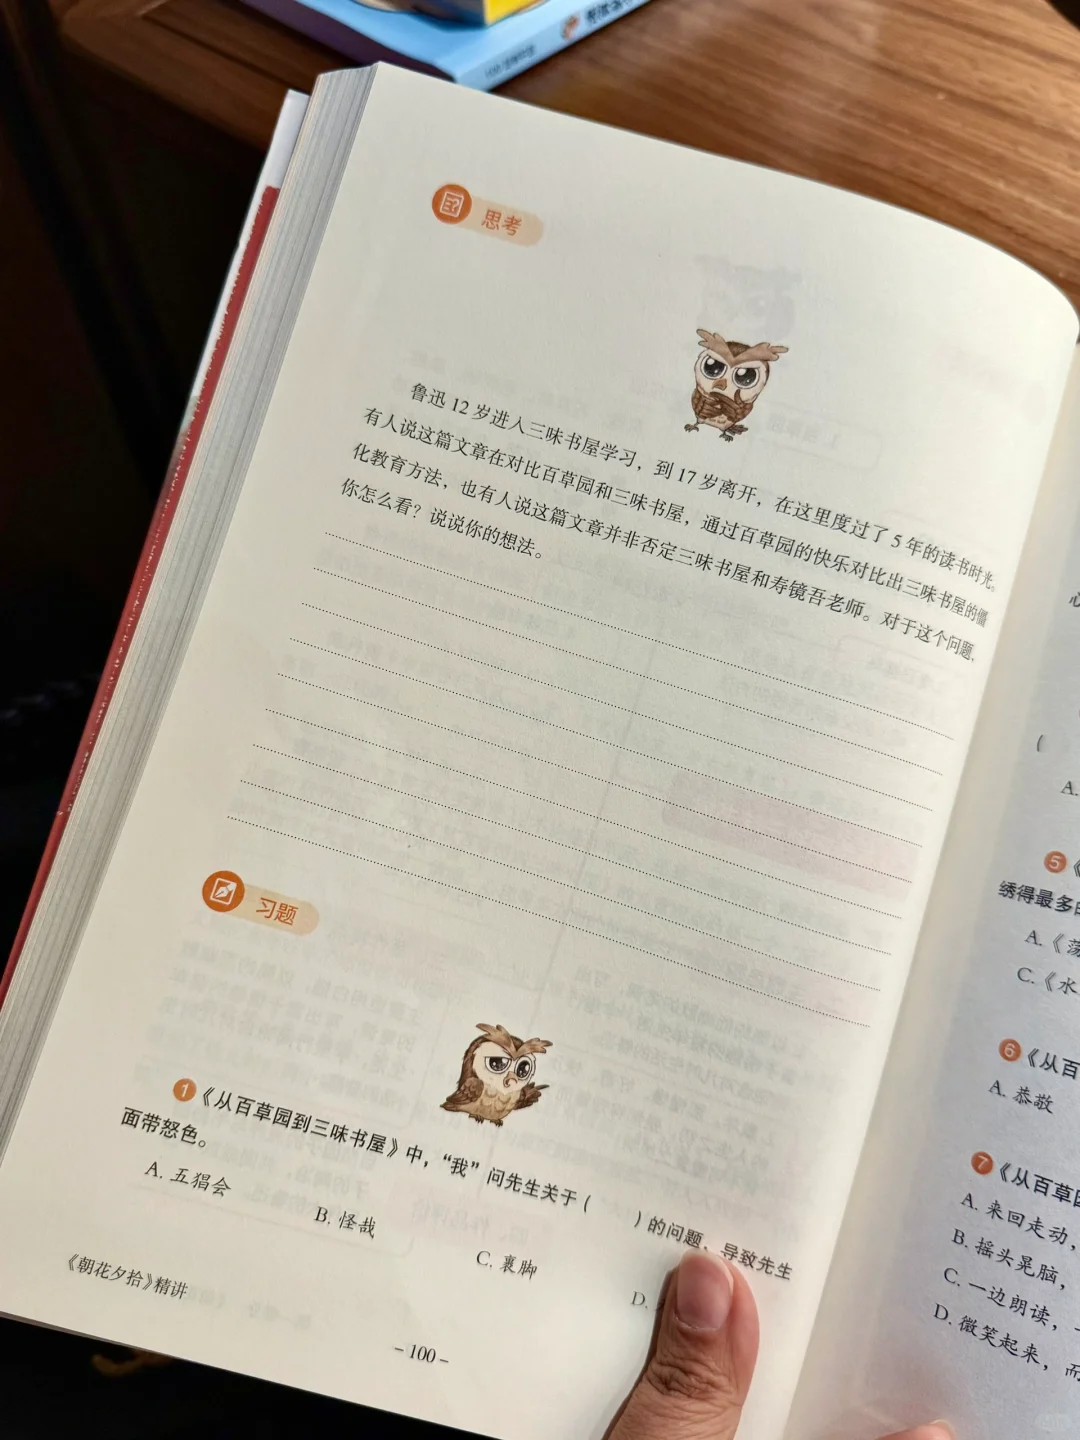 思考
鲁迅 12 岁进入三味书屋学习，到 17 岁离开，在这里度过了 5 年的读书时光。
有人说这篇文章在对比百草园和三味书屋，通过百草园的快乐对比出三味书屋的僵
化教育方法，也有人说这篇文章并非否定三味书屋和寿镜吾老师。对于这个问题，
你怎么看？说说你的想法。
习题
1 《从百草园到三味书屋》中，“我”问先生关于（ ）的问题，导致先生
面带怒色。
A. 五猖会
B. 怪哉
C. 裹脚
D.
《朝花夕拾》精讲
- 100 -
(
A.
5 《
绣得最多
A.《荡
C.《水
6 《从百
A. 恭敬
7 《从百草
A. 来回走动，
B. 摇头晃脑，
C. 一边朗读，
D. 微笑起来，而